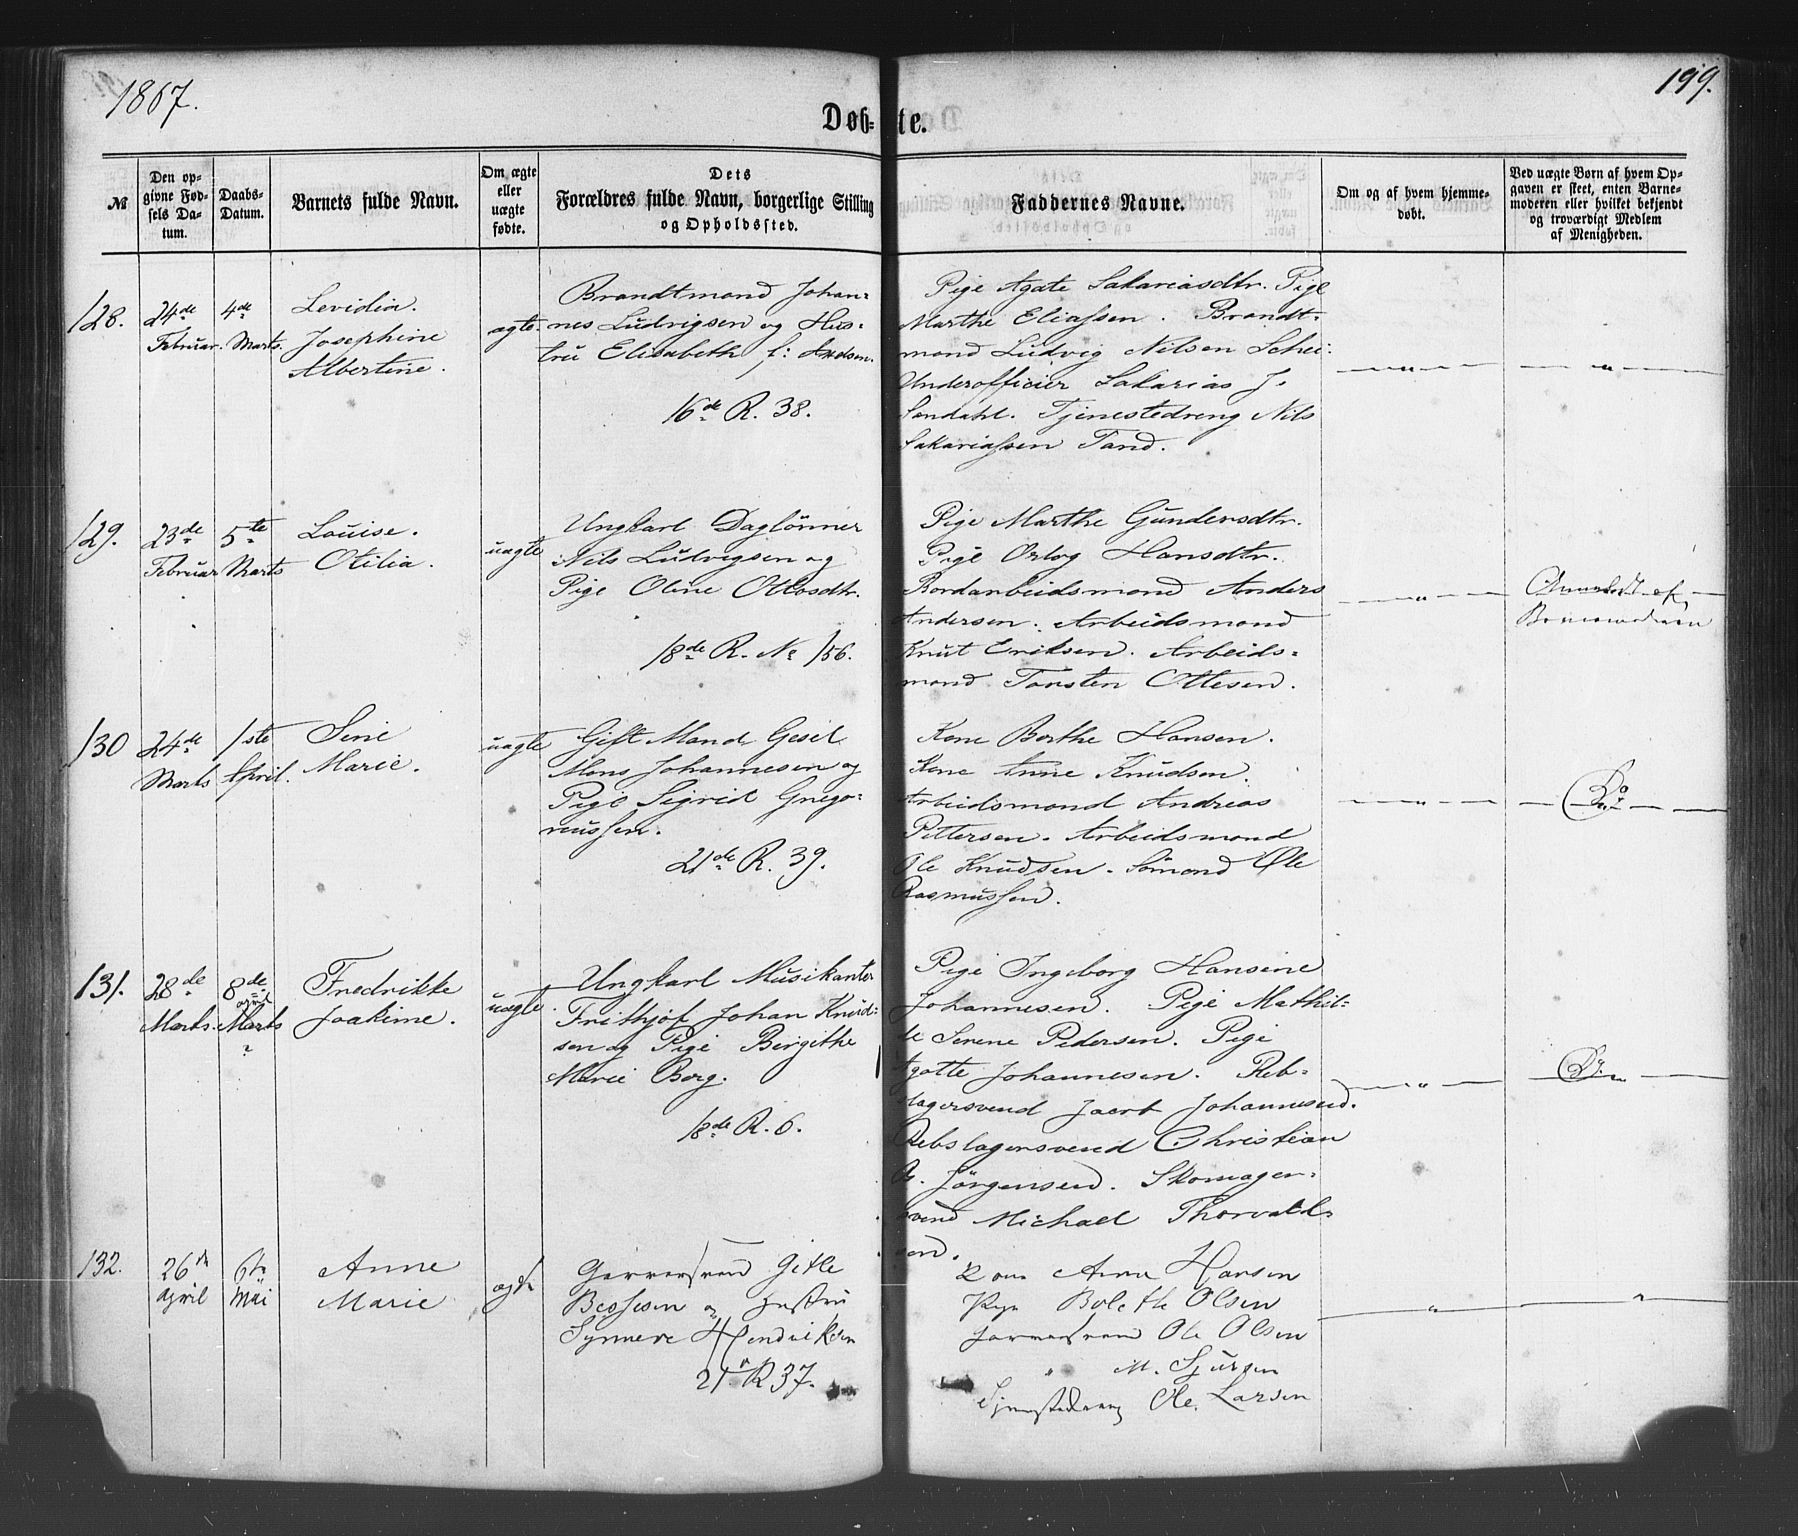 1867.
199.
Døb-te.
№
Den opgivne Fødsels Datum.
Daabs-Datum.
Barnets fulde Navn.
Om ægte eller uægte fødte.
Dets Forældres fulde Navn, borgerlige Stilling og Opholdssted.
Faddernes Navne.
Om og af hvem hjemmedøbt.
Ved uægte Børn af hvem Opgaven er skeet, enten Barnemoderen eller hvilket bekjendt og troværdigt Medlem af Menigheden.
128.
24de Februar.
4de Marts.
Levidia.
Josephine
Albertine.
ægte.
Brandtmand Johan-
nes Ludvigsen og Hus-
tru Elisabeth f:
16de R. 38.
Pige Agate Sakariasdtr. Pige
Marthe Eliassen. Brandt-
mand Ludvig Nilsen Schei.
Underofficier Sakarias J.
Søndahl. Tjenestedreng Nils
Sakariassen Tand.
— " —
— " —
129.
23de Februar
5te Marts
Louise.
Otilia.
uægte
Ungkarl Daglönner
Nils Ludvigsen og
Pige Oline Ottosdtr.
18de R. № 156.
Pige Marthe Gundersdtr.
Pige Orlog Hansdtr.
Bordarbeidsmand Anders
Andersen. Arbeidsmand
Knut Eriksen. Arbeids-
mand Torsten Ottesen.
— " —
Anmeldt af
Barnemoderen
130
24de Marts
1ste April.
Sine
Marie.
uægte
Gift Mand Gesel
Mons Johannesen og
Pige Sigrid Grego-
riussen.
21de R. 39.
Kone Berthe Hansen.
Kone Anne Knudsen.
Arbeidsmand Andreas
Pettersen. Arbeidsmand
Ole Knudsen. Sömand Ole
Rasmussen.
— " —
Do
131.
28de Marts.
8de april Marts
Fredrikke
Joakime.
uægte.
Ungkarl Musikanter
Frithjof Johan Knud-
sen og Pige Bergithe
Marie Borg.
18de R. 6.
Pige Ingeborg Hansine
Johannesen. Pige Mathil-
de Serene Pedersen. Pige
Agatte Johannesen. Reb-
slagersvend Jacob Johannesen.
Rebslagersvend Christian
A. Jörgensen. Skomager-
svend Michael Thorvald-
sen.
— " —
Do
132.
26de April
6te Mai
Anne
Marie
ægte
Garversvend Gitle
Bessesen og Hustru
Synneve Hendriksen
21de R 37.
Kone Anna Hansen
Pige Bolethe Olsen
Garversvend Ole Olsen
" M. Sjursen
Tjenestedreng Ole Larsen
"
"